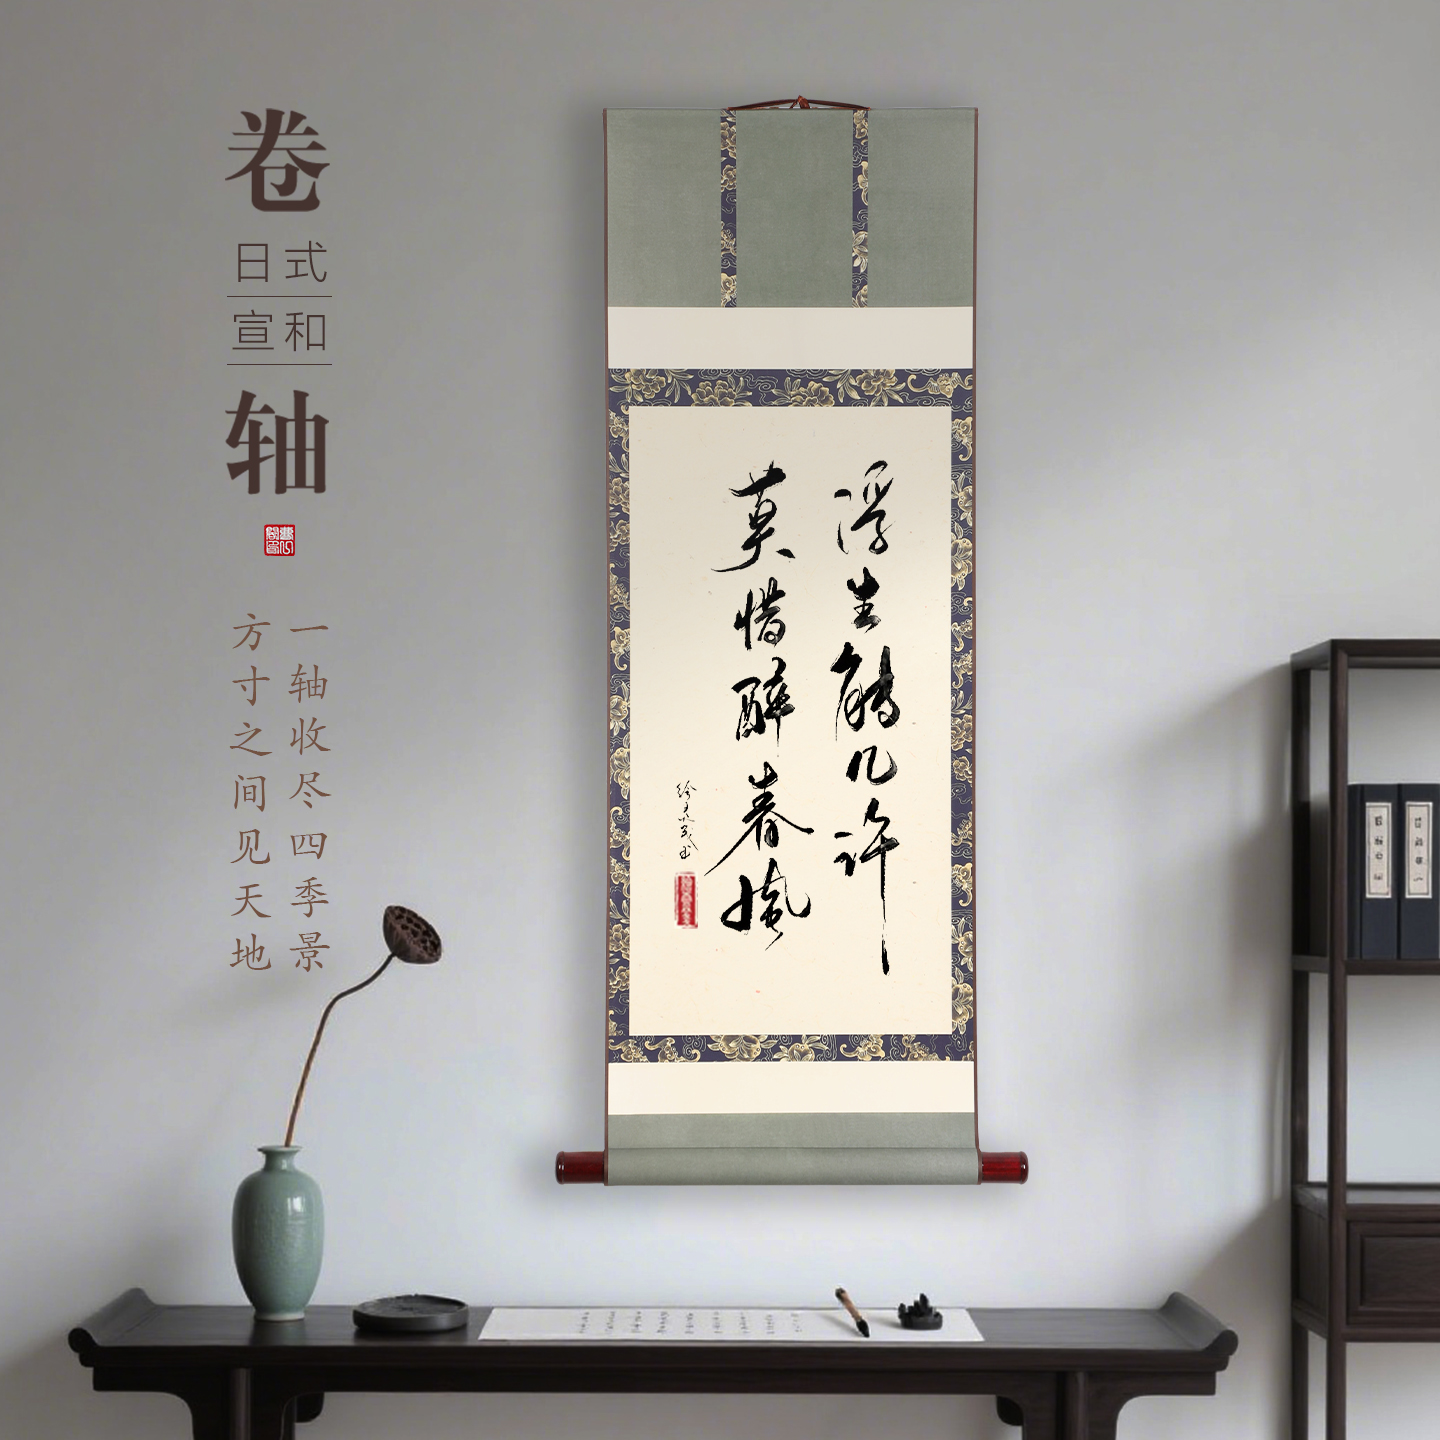 卷
日式
宣和
轴
一轴收尽四季景
方寸之间见天地
浮生能几许
莫惜醉春风